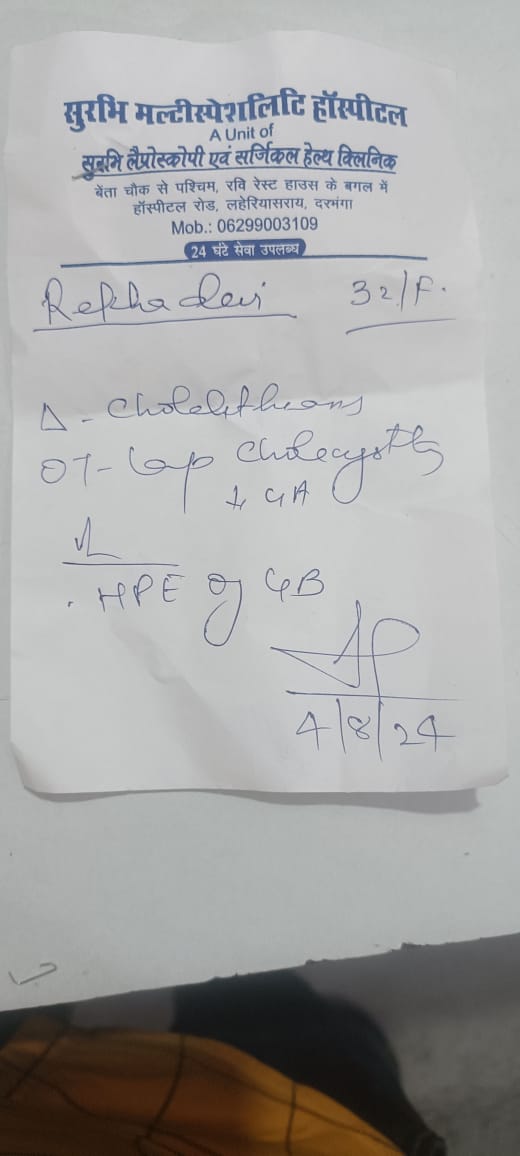 सुरभि मल्टीस्पेशलिटि हॉस्पीटल
A Unit of
सुरभि लैप्रोस्कोपी एवं सर्जिकल हेल्थ क्लिनिक
बेंता चौक से पश्चिम, रवि रेस्ट हाउस के बगल में
हॉस्पीटल रोड, लहेरियासराय, दरभंगा
Mob.: 06299003109
24 घंटे सेवा उपलब्ध
Rekha devi 32/F.
Δ - Cholelithiasis
OT - Lap
GA
. HPE of GB
4/8/24